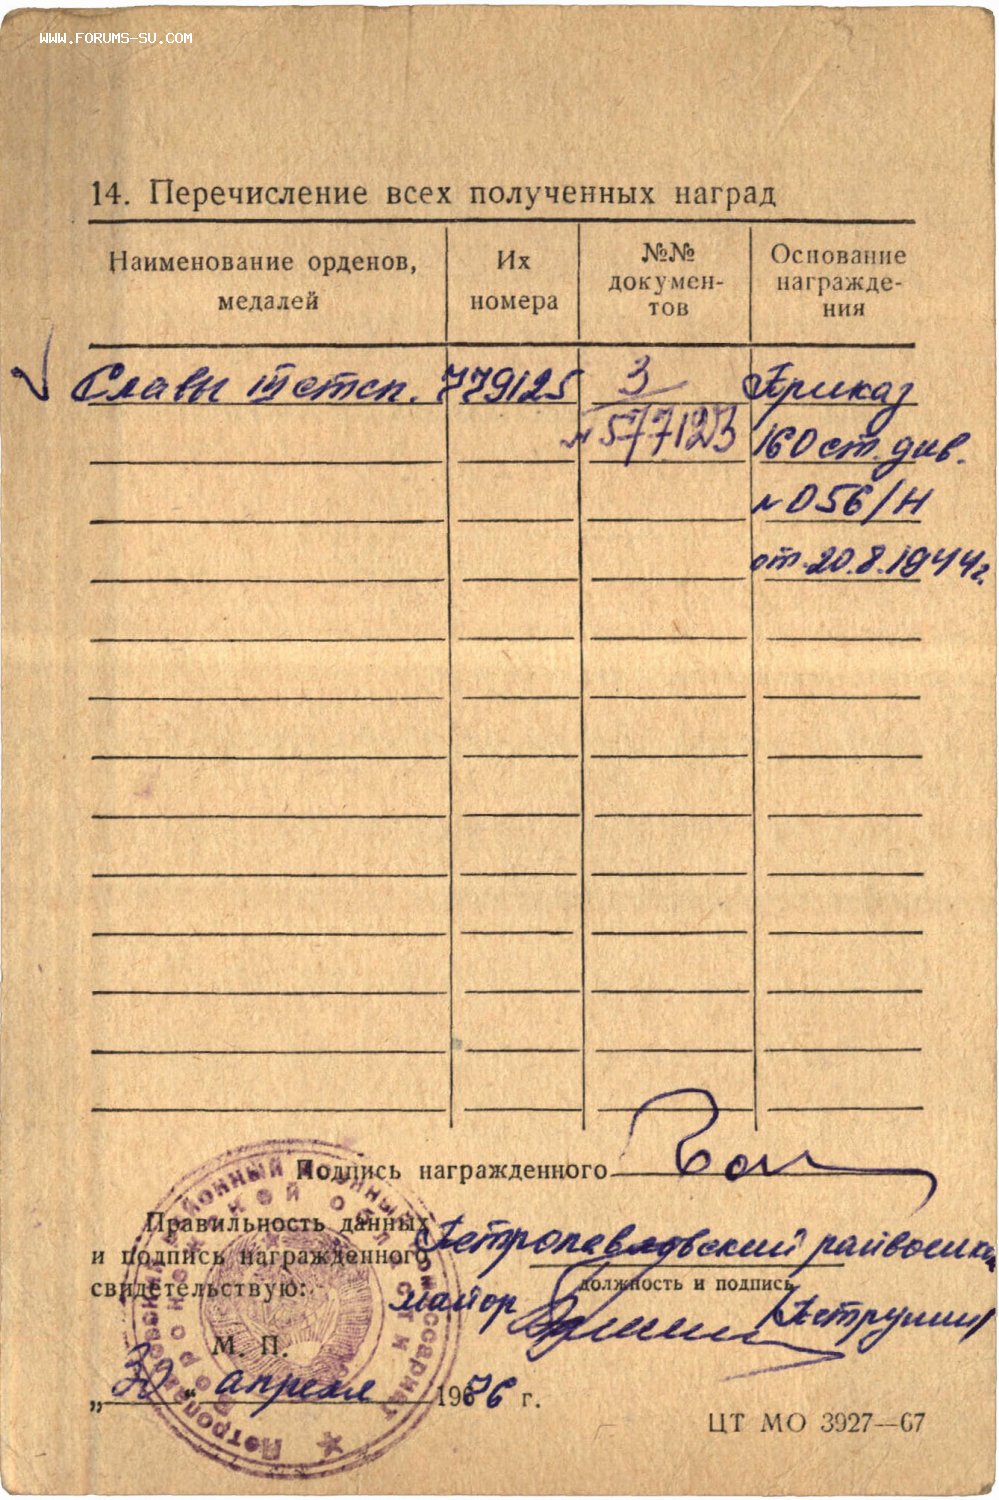 WWW.FORUMS-SU.COM
14. Перечисление всех полученных наград
Наименование орденов, медалей
Их номера
№№ докумен-тов
Основание награжде-ния
Славы III степ. 779125 3 Приказ
№577123 160 ст. див.
№056/Н
от 20.8.1944г.
Подпись награжденного
Правильность данных
и подпись награжденного
свидетельствую:
Петропавловский райвоенком
должность и подпись
майор Петрушин
М. П.
„30“ апреля 1976 г.
ЦТ МО 3927—67
Петропавловский районный военный комиссариат
Воронежской области